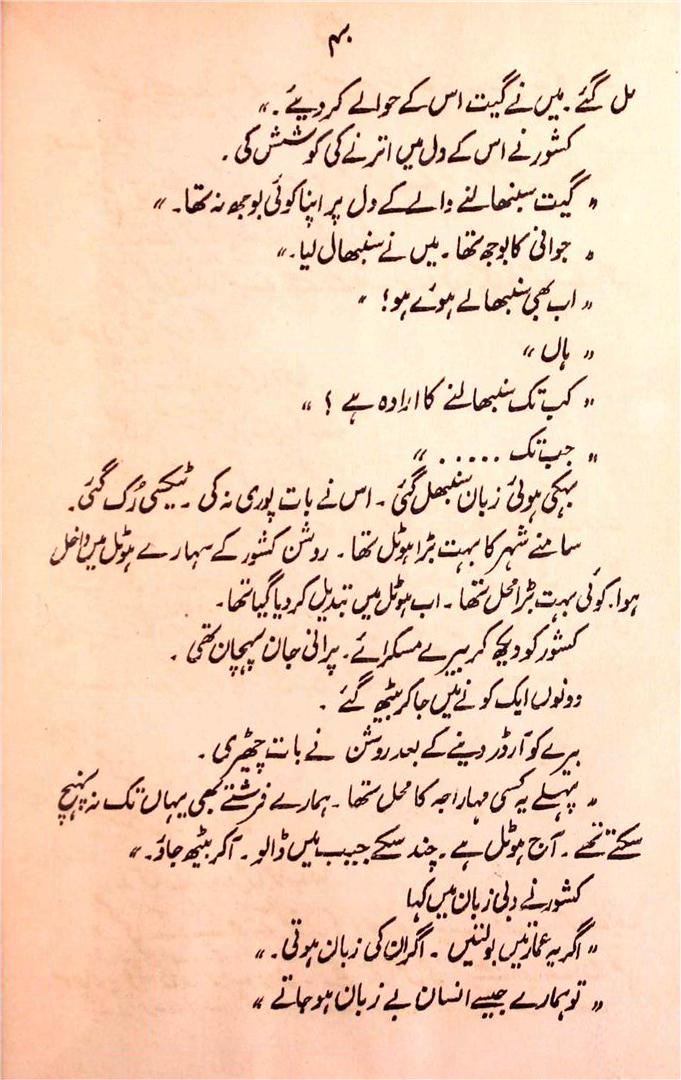 ۴۰
مل گئے۔ میں نے گیت اس کے حوالے کر دیئے۔"
کشور نے اس کے دل میں اترنے کی کوشش کی۔
"گیت سنبھالنے والے کے دل پر اپنا کوئی بوجھ نہ تھا۔"
"جوانی کا بوجھ تھا۔ میں نے سنبھال لیا۔"
"اب بھی سنبھالے ہوئے ہو؟"
"ہاں"
"کب تک سنبھالنے کا ارادہ ہے؟"
"جب تک ....."
بہکی ہوئی زبان سنبھل گئی۔ اس نے بات پوری نہ کی۔ ٹیکسی رُک گئی۔
سامنے شہر کا بہت بڑا ہوٹل تھا۔ روشن کشور کے سہارے ہوٹل میں داخل
ہوا۔ کوئی بہت بڑا محل تھا۔ اب ہوٹل میں تبدیل کر دیا گیا تھا۔
کشور کو دیکھ کر بیرے مسکرائے۔ پرانی جان پہچان تھی۔
دونوں ایک کونے میں جا کر بیٹھ گئے۔
بیرے کو آرڈر دینے کے بعد روشن نے بات چھیڑی۔
"پہلے یہ کسی مہاراجہ کا محل تھا۔ ہمارے فرشتے بھی یہاں تک نہ پہنچ
سکتے تھے۔ آج ہوٹل ہے۔ چند سکے جیب میں ڈالو۔ آکر بیٹھ جاؤ۔"
کشور نے دبی زبان میں کہا
"اگر یہ عمارتیں بولتیں۔ اگر ان کی زبان ہوتی۔"
"تو ہمارے جیسے انسان بے زبان ہو جاتے"